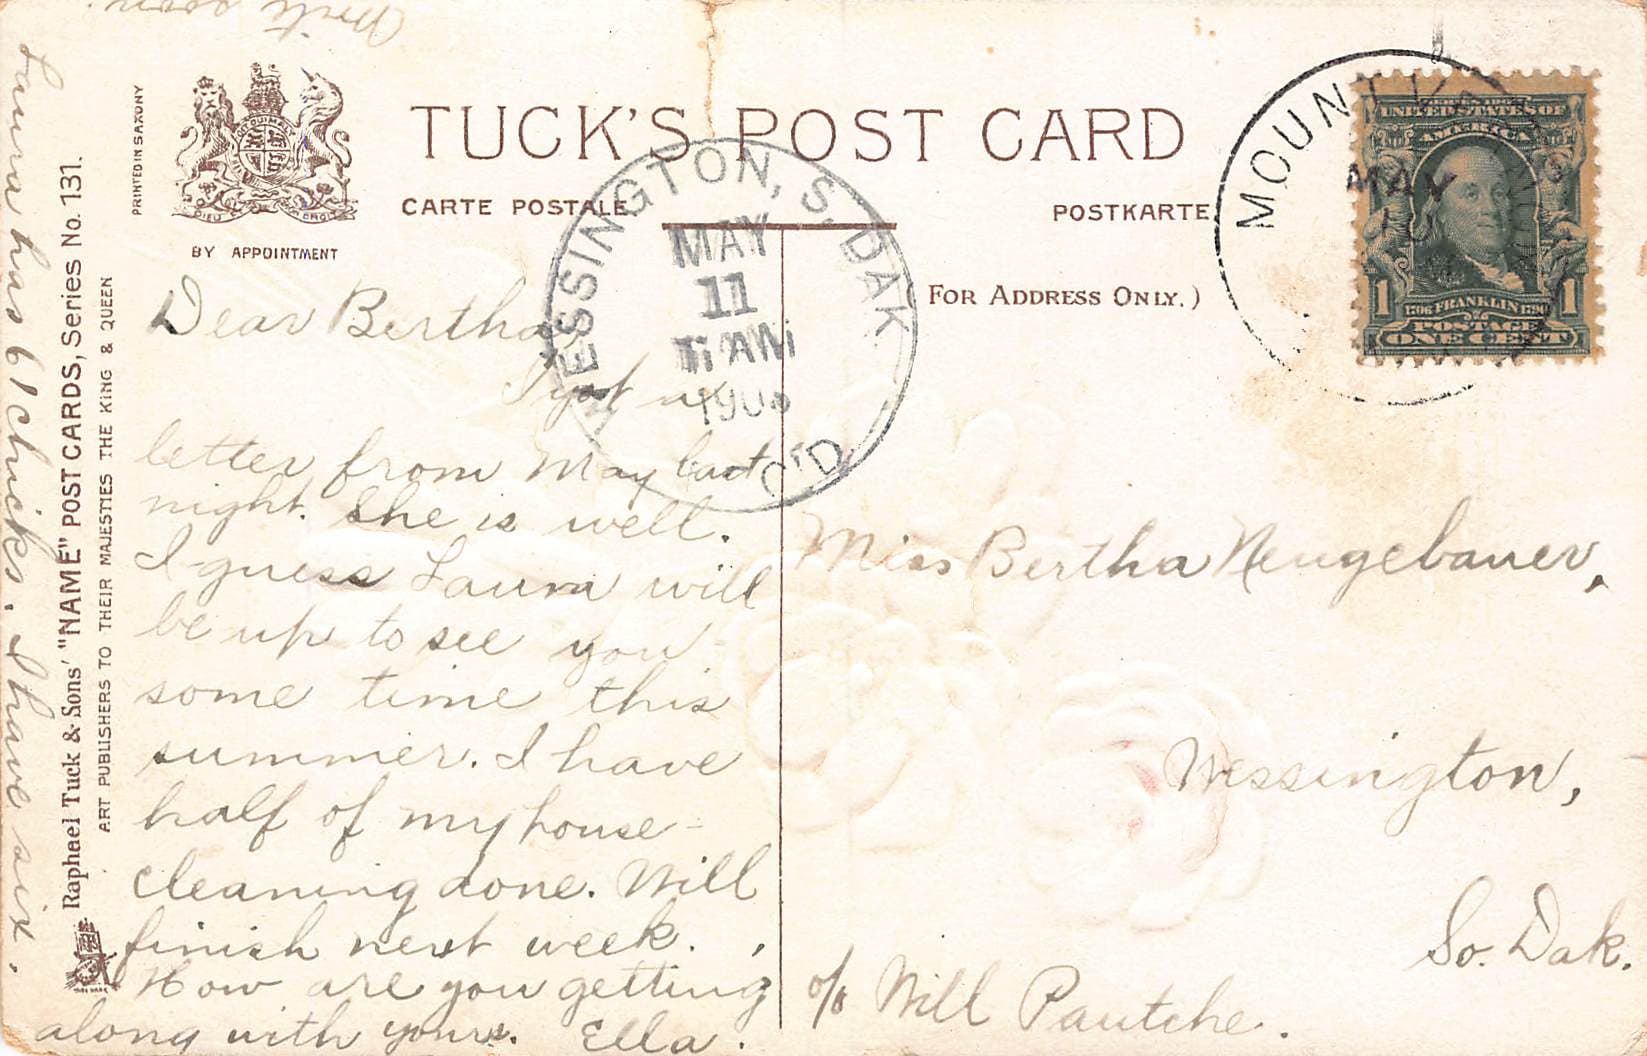 Write soon.
PRINTED IN SAXONY
DIEU ET MON DROIT
BY APPOINTMENT
TUCK'S POST CARD
CARTE POSTALE
POSTKARTE
FOR ADDRESS ONLY.)
WESSINGTON, S. DAK
MAY
11
AM
REC'D
MOUNT
MAY
UNITED STATES OF
AMERICA
1 1706 FRANKLIN 1790 1
POSTAGE
ONE CENT
Dear Bertha,
I got a
letter from May last
night. She is well.
I guess Laura will
be up to see you
some time this
summer. I have
half of my house-
cleaning done. Will
finish next week.
How are you getting
along with yours. Ella.
Laura has 61 chicks. I have six.
Raphael Tuck & Sons' "NAME" POST CARDS, Series No. 131.
ART PUBLISHERS TO THEIR MAJESTIES THE KING & QUEEN
Miss Bertha Neugebauer,
Wessington,
So. Dak.
c/o Will Pautche.